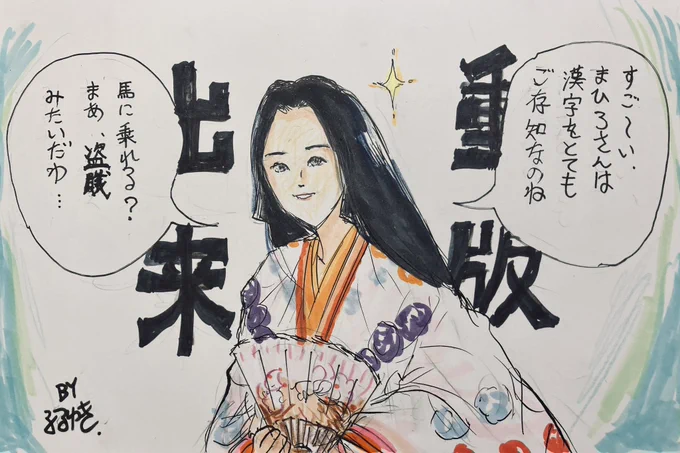 すご〜い、
まひろさんは
漢字をとても
ご存知なのね
重版
出来
馬に乗れる？
まあ、盗賊
みたいだわ…
BY